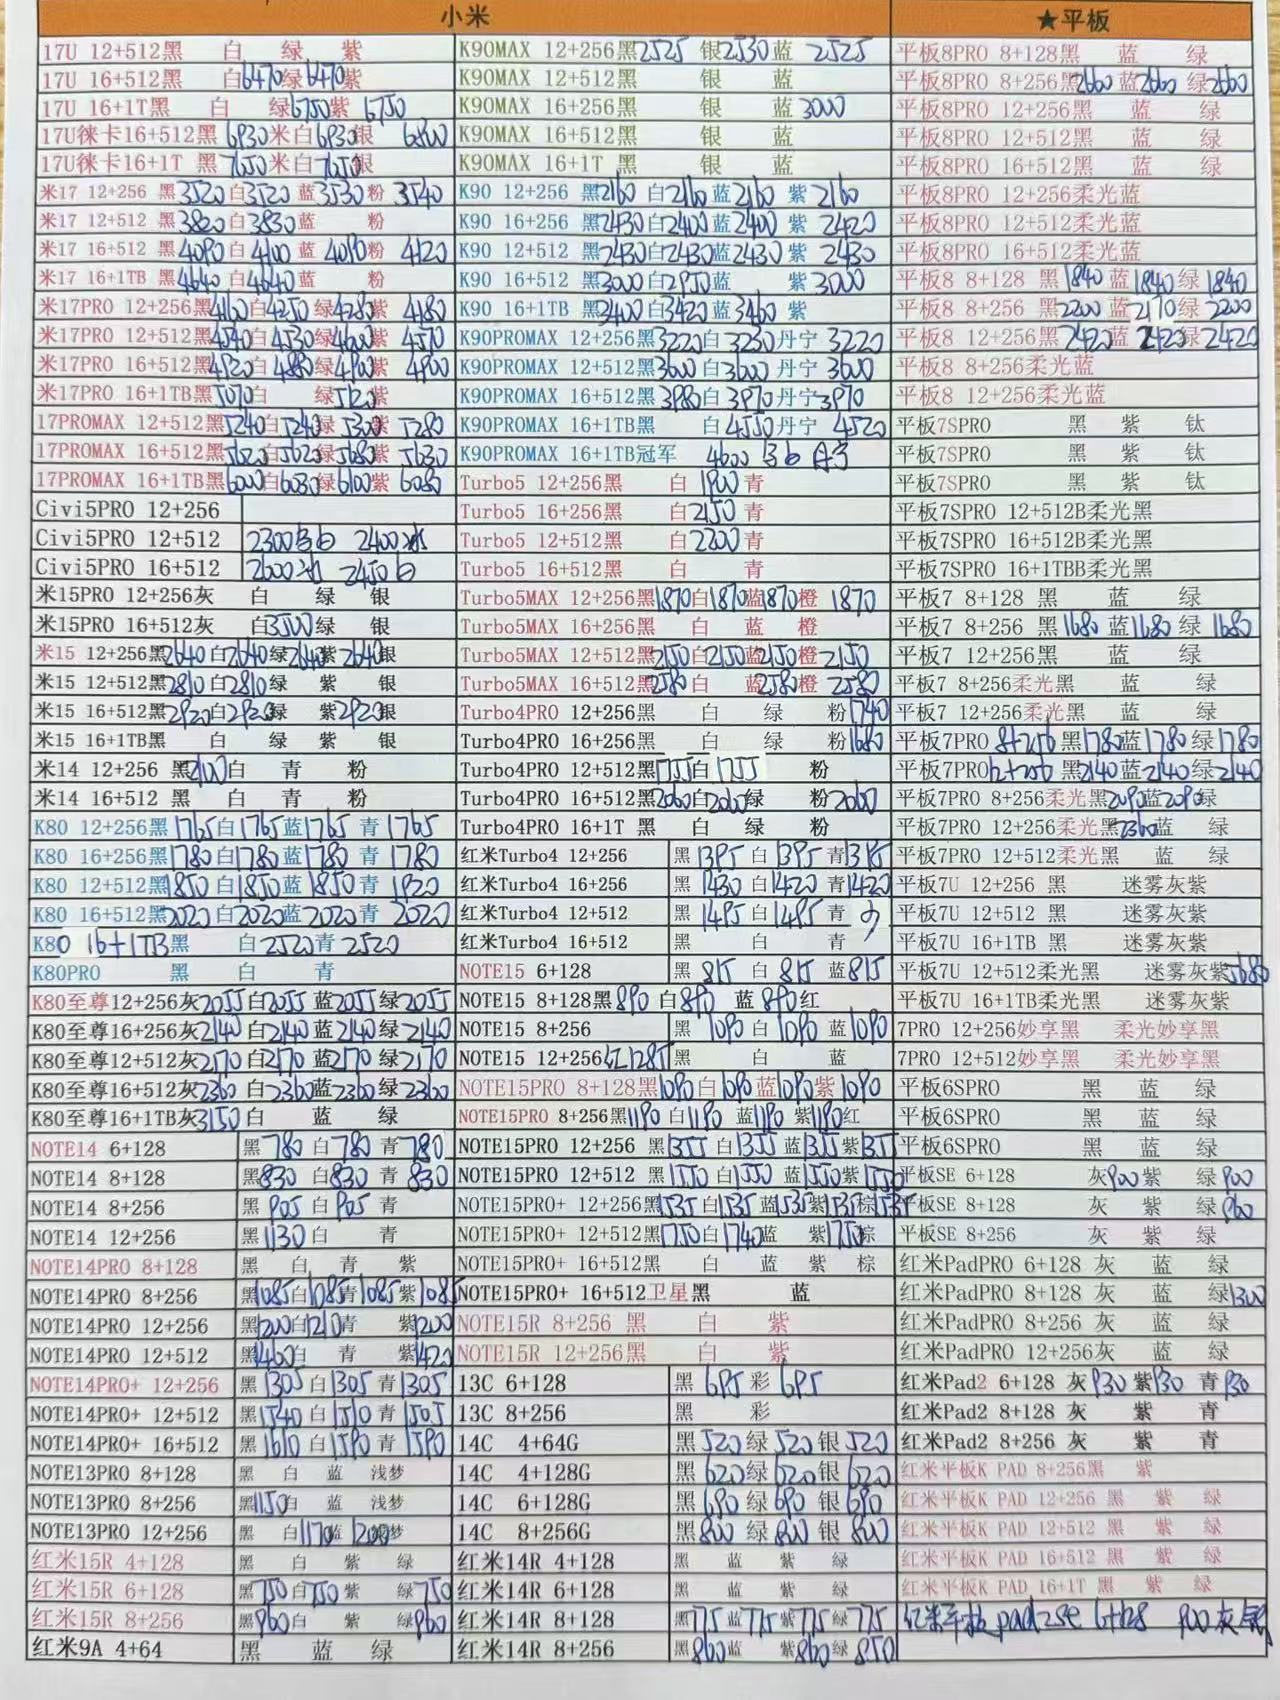 小米
17U 12+512黑 白 绿 紫
17U 16+512黑 白6470绿6470紫
17U 16+1T黑 白 绿6750紫 6750
17U徕卡16+512黑 6930米白6930银
17U徕卡16+1T 黑 7650米白7650银
米17 12+256 黑3520白3520蓝3530粉 3540
米17 12+512 黑3820白3830蓝 粉
米17 16+512 黑4090白4100蓝 4090粉 4120
米17 16+1TB 黑4640白4640蓝 粉
米17PRO 12+256黑4160白4250绿4280紫 4180
米17PRO 12+512黑4540白4530绿4600紫 4570
米17PRO 16+512黑4920白4880绿4900紫 4900
米17PRO 16+1TB黑5070白 绿5120紫
17PROMAX 12+512黑5240白5240绿5300紫 5280
17PROMAX 16+512黑5620白5620绿5680紫 5630
17PROMAX 16+1TB黑6000白6030绿6100紫 6080
Civi5PRO 12+256
Civi5PRO 12+512 2300白 2400冰
Civi5PRO 16+512 2600冰 2450白
米15PRO 12+256灰 白 绿 银
米15PRO 16+512灰 白3500绿 银
米15 12+256黑2640白2640绿2640紫2640银
米15 12+512黑2810白2810绿 紫 银
米15 16+512黑2920白2920绿 紫2920银
米15 16+1TB黑 白 绿 紫 银
米14 12+256 黑2100白 青 粉
米14 16+512 黑 白 青 粉
K80 12+256黑1765白1765蓝1765 青1765
K80 16+256黑1780白1780蓝1780 青1780
K80 12+512黑1850白1850蓝1850青 1920
K80 16+512黑2020白2020蓝2020青 2020
K80 16+1TB黑 白2520青2520
K80PRO 黑 白 青
K80至尊12+256灰2055白2055蓝2055绿2055
K80至尊16+256灰2140白2140蓝2140绿2140
K80至尊12+512灰2170白2170蓝2170绿2170
K80至尊16+512灰2360白2360蓝2360绿2360
K80至尊16+1TB灰3150白 蓝 绿
NOTE14 6+128 黑780白780青780
NOTE14 8+128 黑830白830青830
NOTE14 8+256 黑905白905青
NOTE14 12+256 黑1130白 青
NOTE14PRO 8+128 黑 白 青 紫
NOTE14PRO 8+256 黑1085白1085青1085紫1085
NOTE14PRO 12+256 黑1200白1210青 紫1200
NOTE14PRO 12+512 黑1460白 青 紫1420
NOTE14PRO+ 12+256 黑1305白1305青1305
NOTE14PRO+ 12+512 黑1540白1510青1505
NOTE14PRO+ 16+512 黑1610白1590青1590
NOTE13PRO 8+128 黑 白 蓝 浅梦
NOTE13PRO 8+256 黑1150白 蓝 浅梦
NOTE13PRO 12+256 黑 白1170蓝 1200梦
红米15R 4+128 黑 白 紫 绿
红米15R 6+128 黑750白750紫 绿750
红米15R 8+256 黑960白 紫 绿960
红米9A 4+64 黑 蓝 绿
K90MAX 12+256黑2525 银2530蓝 2525
K90MAX 12+512黑 银 蓝
K90MAX 16+256黑 银 蓝3000
K90MAX 16+512黑 银 蓝
K90MAX 16+1T 黑 银 蓝
K90 12+256 黑2160白2160蓝2160紫2160
K90 16+256 黑2430白2400蓝2400紫 2420
K90 12+512 黑2430白2430蓝2430紫 2430
K90 16+512 黑3000白2950蓝 紫3000
K90 16+1TB 黑3400白3420蓝3460紫
K90PROMAX 12+256黑3220白3230丹宁3220
K90PROMAX 12+512黑3600白3600丹宁3600
K90PROMAX 16+512黑3980白3970丹宁3970
K90PROMAX 16+1TB黑 白4550丹宁 4520
K90PROMAX 16+1TB冠军 4600
Turbo5 12+256黑 白1900青
Turbo5 16+256黑 白2150青
Turbo5 12+512黑 白2200青
Turbo5 16+512黑 白 青
Turbo5MAX 12+256黑1870白1870蓝1870橙 1870
Turbo5MAX 16+256黑 白 蓝 橙
Turbo5MAX 12+512黑2150白2150蓝2150橙2150
Turbo5MAX 16+512黑2580白 蓝2580橙2580
Turbo4PRO 12+256黑 白 绿 粉1740
Turbo4PRO 16+256黑 白 绿 粉1680
Turbo4PRO 12+512黑1755白1755 粉
Turbo4PRO 16+512黑2060白2060绿 粉2060
Turbo4PRO 16+1T 黑 白 绿 粉
红米Turbo4 12+256 黑1395白1395青1395
红米Turbo4 16+256 黑1430白1420青1420
红米Turbo4 12+512 黑1495白1495青
红米Turbo4 16+512 黑 白 青
NOTE15 6+128 黑815白815蓝815
NOTE15 8+128黑890白890蓝890红
NOTE15 8+256 黑1090白1090蓝1090
NOTE15 12+256红1285黑 白 蓝
NOTE15PRO 8+128黑1090白1090蓝1090紫1090
NOTE15PRO 8+256黑1190白1190蓝1190紫1190红
NOTE15PRO 12+256 黑1355白1355蓝1355紫1355
NOTE15PRO 12+512 黑1550白1550蓝1550紫1550
NOTE15PRO+ 12+256黑1535白1535蓝1535紫1535棕1535
NOTE15PRO+ 12+512黑1750白1740蓝 紫1750棕
NOTE15PRO+ 16+512黑 白 蓝 紫 棕
NOTE15PRO+ 16+512卫星黑 蓝
NOTE15R 8+256 黑 白 紫
NOTE15R 12+256黑 白 紫
13C 6+128 黑695彩695
13C 8+256 黑 彩
14C 4+64G 黑520绿520银520
14C 4+128G 黑620绿620银620
14C 6+128G 黑690绿690银690
14C 8+256G 黑800绿800银800
红米14R 4+128 黑 蓝 紫 绿
红米14R 6+128 黑 蓝 紫 绿
红米14R 8+128 黑775蓝775紫775绿775
红米14R 8+256 黑860蓝 紫860绿850
★平板
平板8PRO 8+128黑 蓝 绿
平板8PRO 8+256黑2660蓝2660绿2660
平板8PRO 12+256黑 蓝 绿
平板8PRO 12+512黑 蓝 绿
平板8PRO 16+512黑 蓝 绿
平板8PRO 12+256柔光蓝
平板8PRO 12+512柔光蓝
平板8PRO 16+512柔光蓝
平板8 8+128 黑1840蓝1840绿1840
平板8 8+256 黑2200蓝2170绿2200
平板8 12+256黑2420蓝2420绿2420
平板8 8+256柔光蓝
平板8 12+256柔光蓝
平板7SPRO 黑 紫 钛
平板7SPRO 黑 紫 钛
平板7SPRO 黑 紫 钛
平板7SPRO 12+512B柔光黑
平板7SPRO 16+512B柔光黑
平板7SPRO 16+1TBB柔光黑
平板7 8+128 黑 蓝 绿
平板7 8+256 黑1680蓝1680绿1680
平板7 12+256黑 蓝 绿
平板7 8+256柔光黑 蓝 绿
平板7 12+256柔光黑 蓝 绿
平板7PRO 8+256黑1780蓝1780绿1780
平板7PRO12+256黑2140蓝2140绿2140
平板7PRO 8+256柔光黑2090蓝2090绿
平板7PRO 12+256柔光黑2360蓝 绿
平板7PRO 12+512柔光黑 蓝 绿
平板7U 12+256 黑 迷雾灰紫
平板7U 12+512 黑 迷雾灰紫
平板7U 16+1TB 黑 迷雾灰紫
平板7U 12+512柔光黑 迷雾灰紫5680
平板7U 16+1TB柔光黑 迷雾灰紫
7PRO 12+256妙享黑 柔光妙享黑
7PRO 12+512妙享黑 柔光妙享黑
平板6SPRO 黑 蓝 绿
平板6SPRO 黑 蓝 绿
平板6SPRO 黑 蓝 绿
平板SE 6+128 灰900紫 绿900
平板SE 8+128 灰 紫 绿960
平板SE 8+256 灰 紫 绿
红米PadPRO 6+128 灰 蓝 绿
红米PadPRO 8+128 灰 蓝 绿1300
红米PadPRO 8+256 灰 蓝 绿
红米PadPRO 12+256灰 蓝 绿
红米Pad2 6+128 灰930紫930青930
红米Pad2 8+128 灰 紫 青
红米Pad2 8+256 灰 紫 青
红米平板K PAD 8+256黑 紫
红米平板K PAD 12+256 黑 紫 绿
红米平板K PAD 12+512 黑 紫 绿
红米平板K PAD 16+512 黑 紫 绿
红米平板K PAD 16+1T 黑 紫 绿
红米平板 pad2se 6+128 900灰